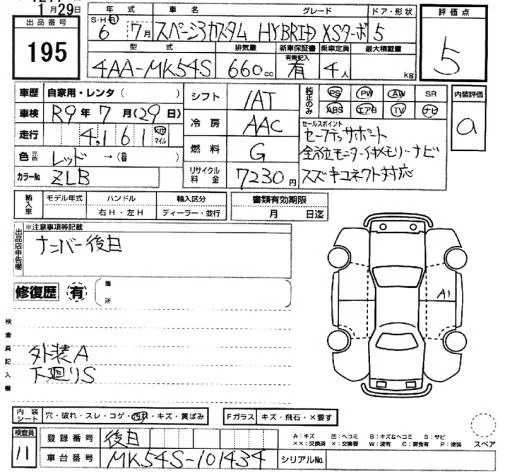 1月29日
出品番号
195
年式 車名 グレード ドア・形状
S・H・R 6年7月 スペーシアカスタム HYBRID XSターボ 5
評価点
5
型式 排気量 新車保証書 乗車定員 最大積載量
有無記入
4AA-MK54S 660cc 有 4人 kg
車歴 自家用・レンタ( )
車検 R9年7月(29日)
走行 4,161 km マイル
色 元色 レッド →( )
カラーNo ZLB
シフト IAT
冷房 AAC
燃料 G
リサイクル料金 7230円
純正のみ PS PW AW SR
ABS エアB TV ナビ
内装評価
a
セールスポイント
セーフティサポート
全方位モニター付メモリーナビ
スズキコネクト対応
輸入車 モデル年式 ハンドル 輸入区分
右H・左H ディーラー・並行
書類有効期限
月 日迄
出品店申告欄
※注意事項等記載
ナンバー後日
修復歴 有 箇所
検査員記入欄
外装A
下廻りS
A1
内装シート 穴・破れ・スレ・コゲ・汚れ・キズ・黄ばみ
Fガラス キズ・飛石・×要す
スペア
検査員
11
登録番号 後日
車台番号 MK54S-101434 シリアルNo.
A:キズ U:ヘコミ B:キズ&ヘコミ S:サビ
××:交換済 X:交換要 W:波有 C:腐食有 P:塗装